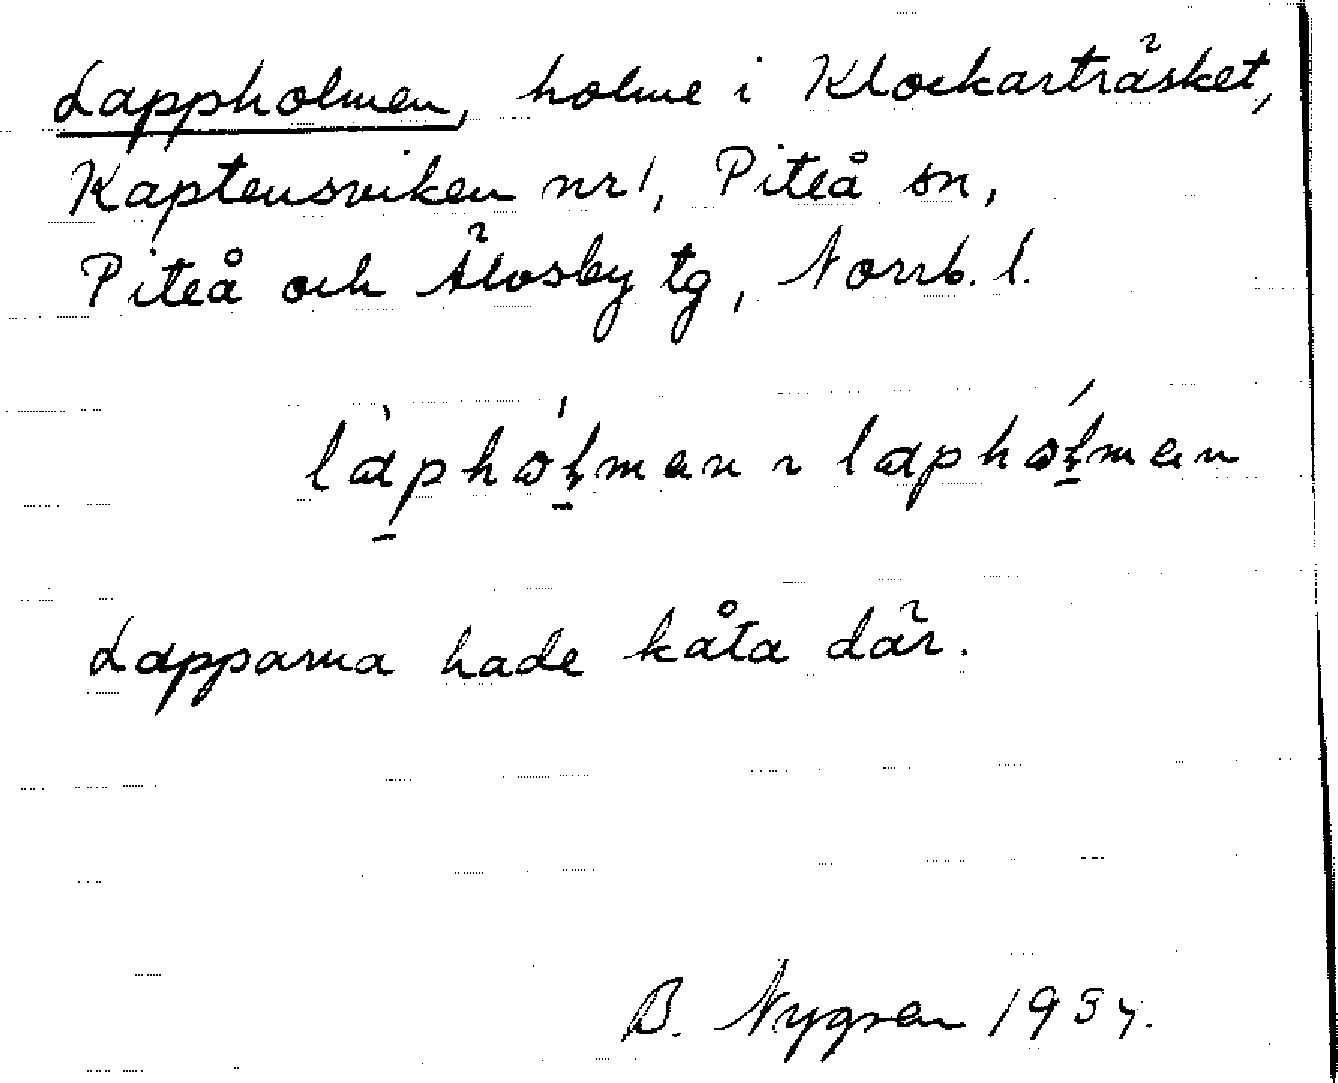 Lappholmen, holme i Klockarträsket,
Kaptensviken nr 1, Piteå sn,
Piteå och Älvsby tg, Norrb. l.
làphólmen ~ laphólmen
Lapparna hade kåta där.
B. Nygren 1937.